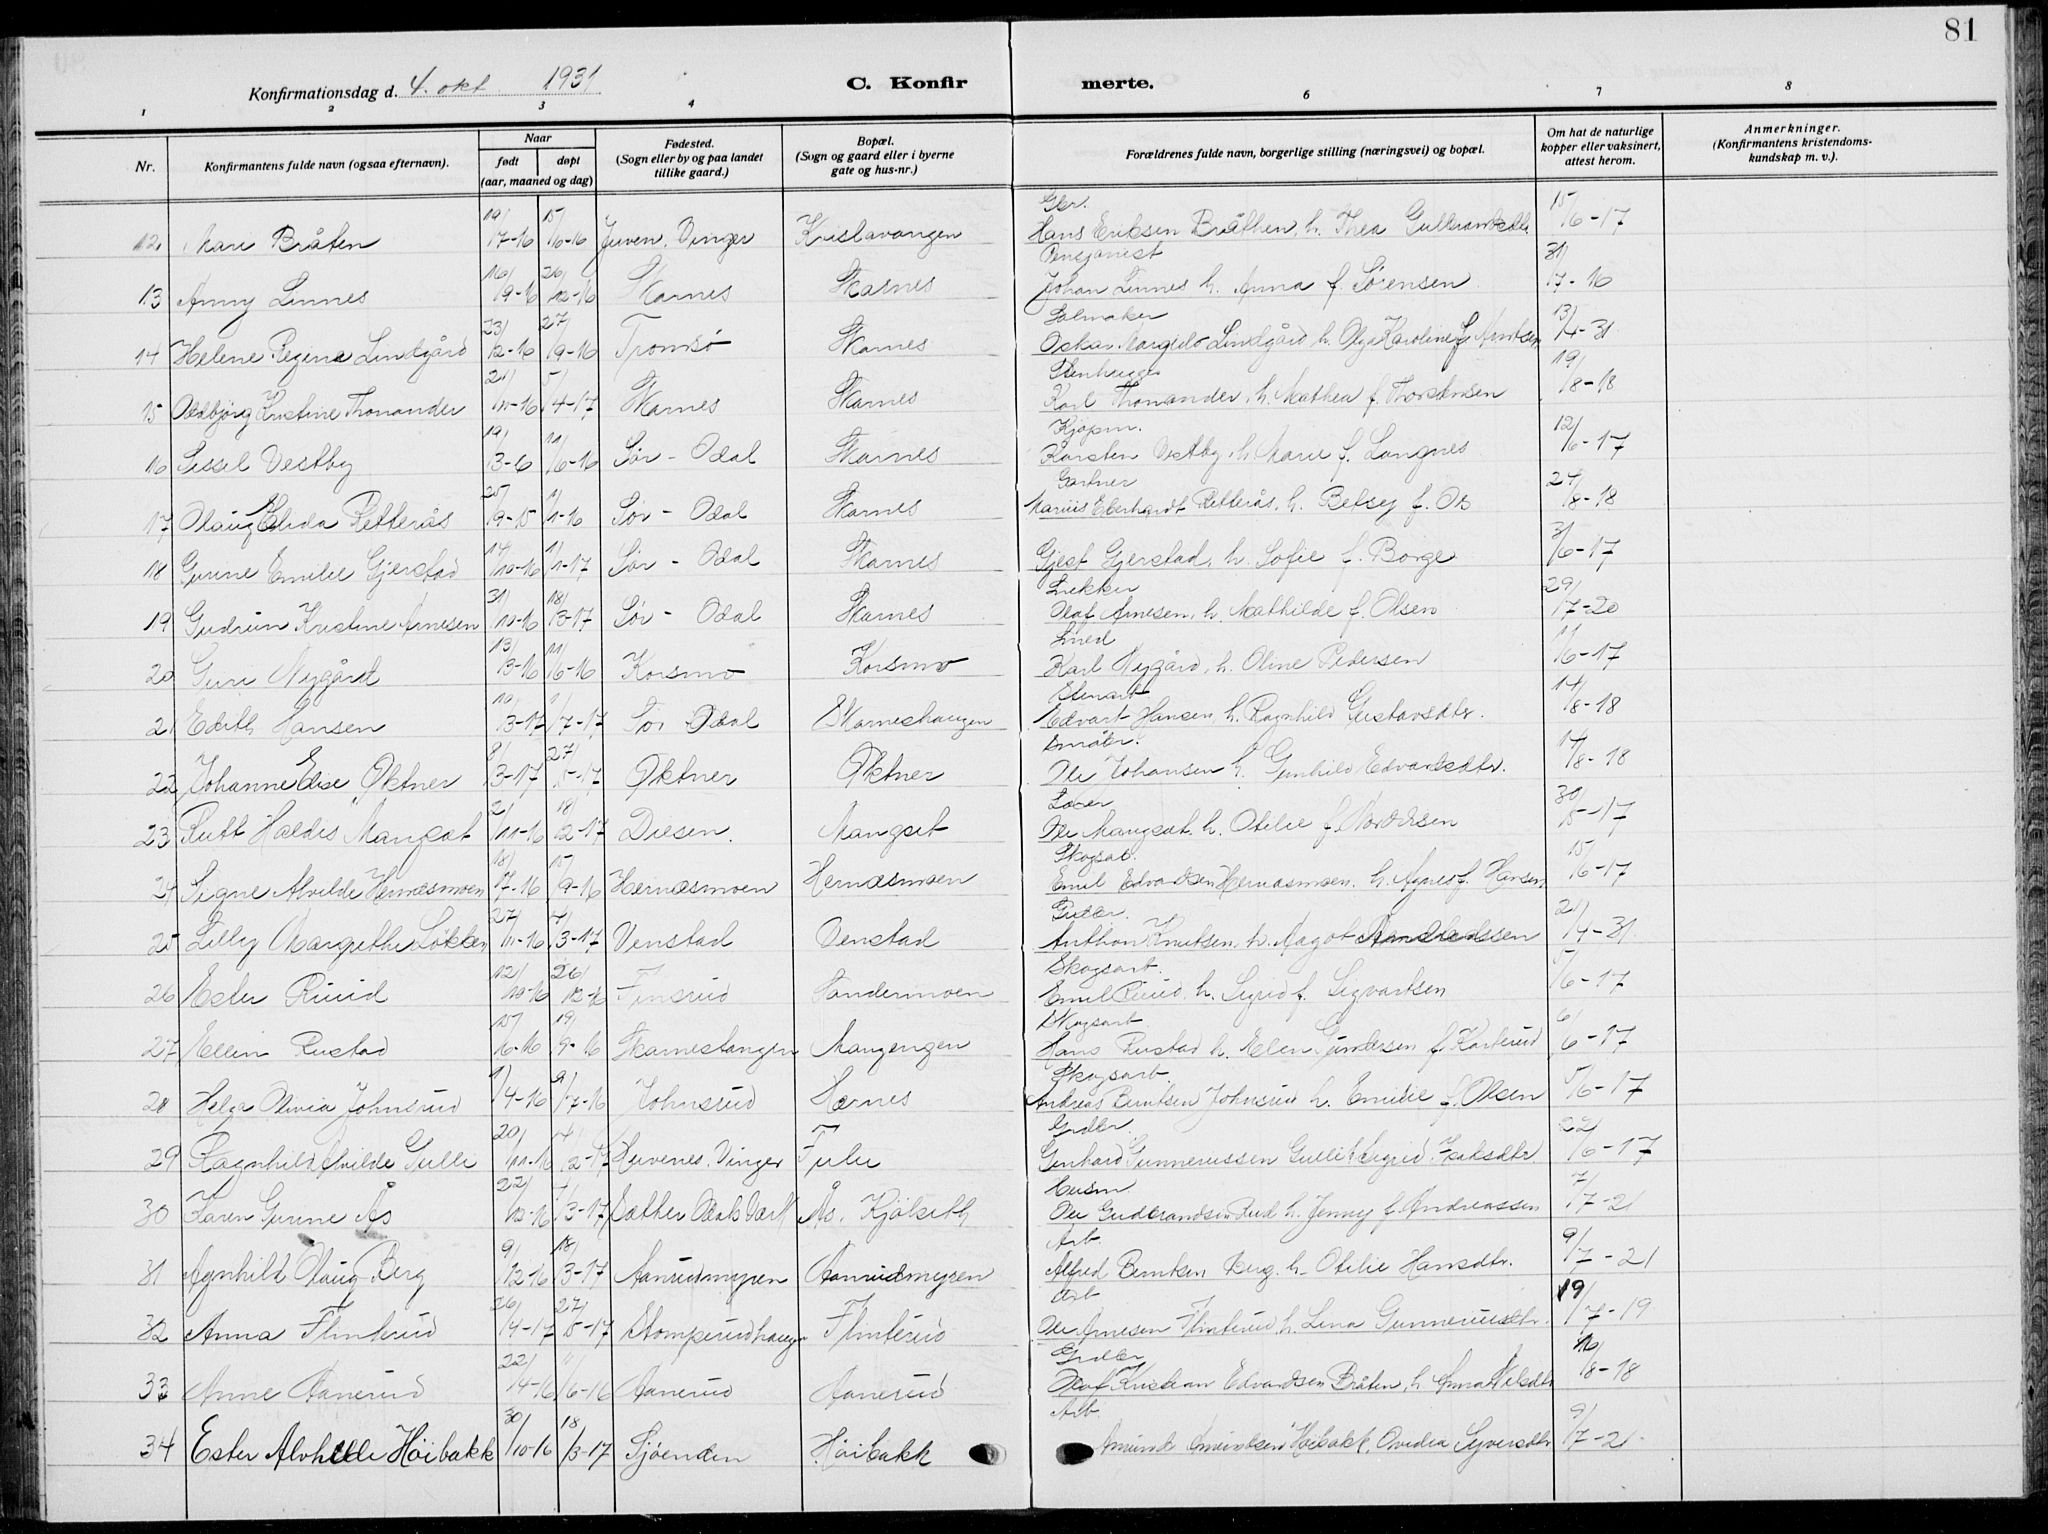 81
Konfirmationsdag d. 4. okt. 1931
C. Konfirmerte.
1 2 3 4 6 7 8
Nr. Konfirmantens fulde navn (ogsaa efternavn). Naar født døpt (aar, maaned og dag) Fødested. (Sogn eller by og paa landet tillike gaard.) Bopæl. (Sogn og gaard eller i byerne gate og hus-nr.) Forældrenes fulde navn, borgerlige stilling (næringsvei) og bopæl. Om hat de naturlige kopper eller vaksinert, attest herom. Anmerkninger. (Konfirmantens kristendomskundskap m. v.).
Gbr.
12 Mari Bråten 19/7-16 15/10-16 Juven, Vinger Kristavangen Hans Eriksen Bråthen, h. Thea 15/6-17
Pensjonist
13 Anny Linnes 16/9-16 26/12-16 Skarnes Skarnes Johan Linnes h. Anna f. Sørensen 31/7-16
Salmaker
14 Helene Regine Lindgård 23/2-16 27/9-16 Tromsø Skarnes Oskar Lindgård h. Olga Karoline f. Arntsen 13/4-31
Stenhugger
15 Oddbjørg Kristine Thonander 21/10-16 5/4-17 Skarnes Skarnes Karl Thonander, h. Mathea f. Thorstensen 19/8-18
Kjøpm.
16 Sissel Vestby 19/3-6 11/6-16 Sør-Odal Skarnes Karsten Vestby, h. Marie f. Langnes 12/6-17
Gartner
17 Olaug Retterås 25/9-15 1/1-16 Sør-Odal Skarnes Marius Eberhardt Retterås, h. Betsey f. Os 24/8-18
18 Gunne Emilie Gjerstad 14/10-16 1/1-17 Sør-Odal Skarnes Gjest Gjerstad, h. Sofie f. Borge 3/6-17
19 Gudrun Kristine Arnesen 31/10-16 18/3-17 Sør-Odal Skarnes Olaf Arnesen, h. Mathilde f. Olsen 29/7-20
20 Guri Nygård 13/3-16 11/6-16 Korsmo Korsmo Karl Nygård, h. Oline Pedersen 11/6-17
21 Edith Hansen 10/3-17 1/7-17 Sør Odal Skarneshaugen Edvart Hansen, h. Ragnhild Gustavsdtr. 14/8-18
Småbr.
22 Johanne Elise Oktner 8/3-17 27/5-17 Oktner Oktner Ole Johansen h. Gunhild Edvardsdtr. 14/8-18
23 Rutt Haldis Mangset 2/11-16 18/2-17 Disen. Mangset Ole Mangset, h. Otelie 30/5-17
Skogsarb.
24 Signe Alvilde Hernæsmoen 18/7-16 15/9-16 Hernæsmoen Hernæsmoen Emil Edvardsen Hernæsmoen, h. Agnes f. Hansen 15/6-17
25 Lilly Margrethe Løkken 27/10-16 4/3-17 Venstad Venstad Anthon Knutsen, h. Aagot 21/4-31
Skogsarb.
26 Ester Ruud 12/10-16 26/12-16 Finsrud Sandermoen Emil Ruud, h. Sigrid f. Sigvartsen 5/6-17
Skogsarb.
27 Ellin Rustad 15/6-16 19/9-16 Skarnestangen Maugengen Hans Rustad h. Elen Gundersen 6/6-17
Skogsarb.
28 Helga Olivia Johnsrud 1/4-16 9/7-16 Johnsrud Hernes Andreas Berntsen Johnsrud h. Emilie f. Olsen 5/6-17
Grdbr.
29 Ragnhild Alvilde Gulli 20/10-16 4/2-17 Vinger Fulu Gunnerussen Gulli h. Sigrid Isaksdtr 22/6-17
Husm.
30 Karen Gunne Ås 22/12-16 4/3-17 Sætther Odals Verk Ås. Kjølseth Ole Gudbrandsen h. Jenny f. Andreassen 7/7-21
Arb.
31 Agnhild Olaug Berg 9/12-16 18/3-17 Aanrudmyren Aanrudmyren Alfred Berntsen Berg, h. Otilie Hansdtr. 9/7-21
Arb
32 Anna Flinterud 26/4-17 27/5-17 Stomperudhaugen Flinterud Ole Arnesen Flinterud, h. Lina Gunnerusdtr. 19/7-19
Grdbr.
33 Anne Aanerud 22/4-16 11/6-16 Aanerud Aanerud Olaf Kristian Edvardsen Bråten, h. Anna Nilsdtr 16/8-18
Arb.
34 Ester Alvhilde Høibakk 30/10-16 18/3-17 Sjøenden Høibakk Amund Amundsen Høibakk, Ovidia Syversdtr 9/7-21